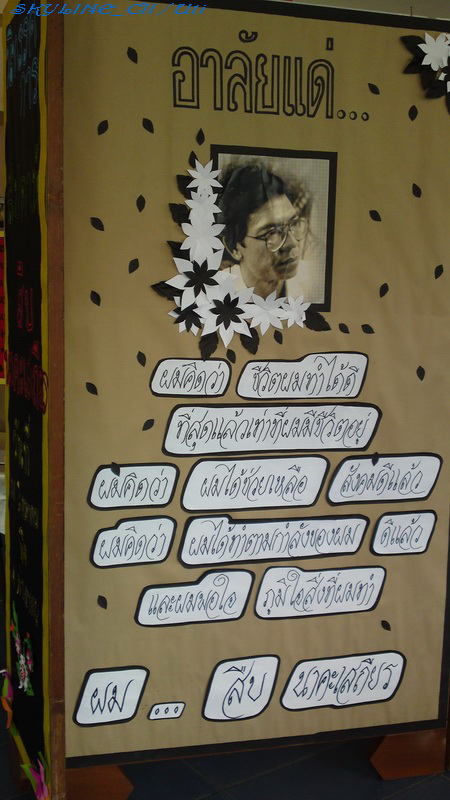 SKYLINE CM/THI
อาลัยแด่...
ผมคิดว่า ชีวิตผมทำได้ดี
ที่สุดแล้วเท่าที่ผมมีชีวิตอยู่
ผมคิดว่า ผมได้ช่วยเหลือ สังคมดีแล้ว
ผมคิดว่า ผมได้ทำตามกำลังของผม ดีแล้ว
และผมพอใจ ภูมิใจสิ่งที่ผมทำ
ผม ... สืบ นาคะเสถียร